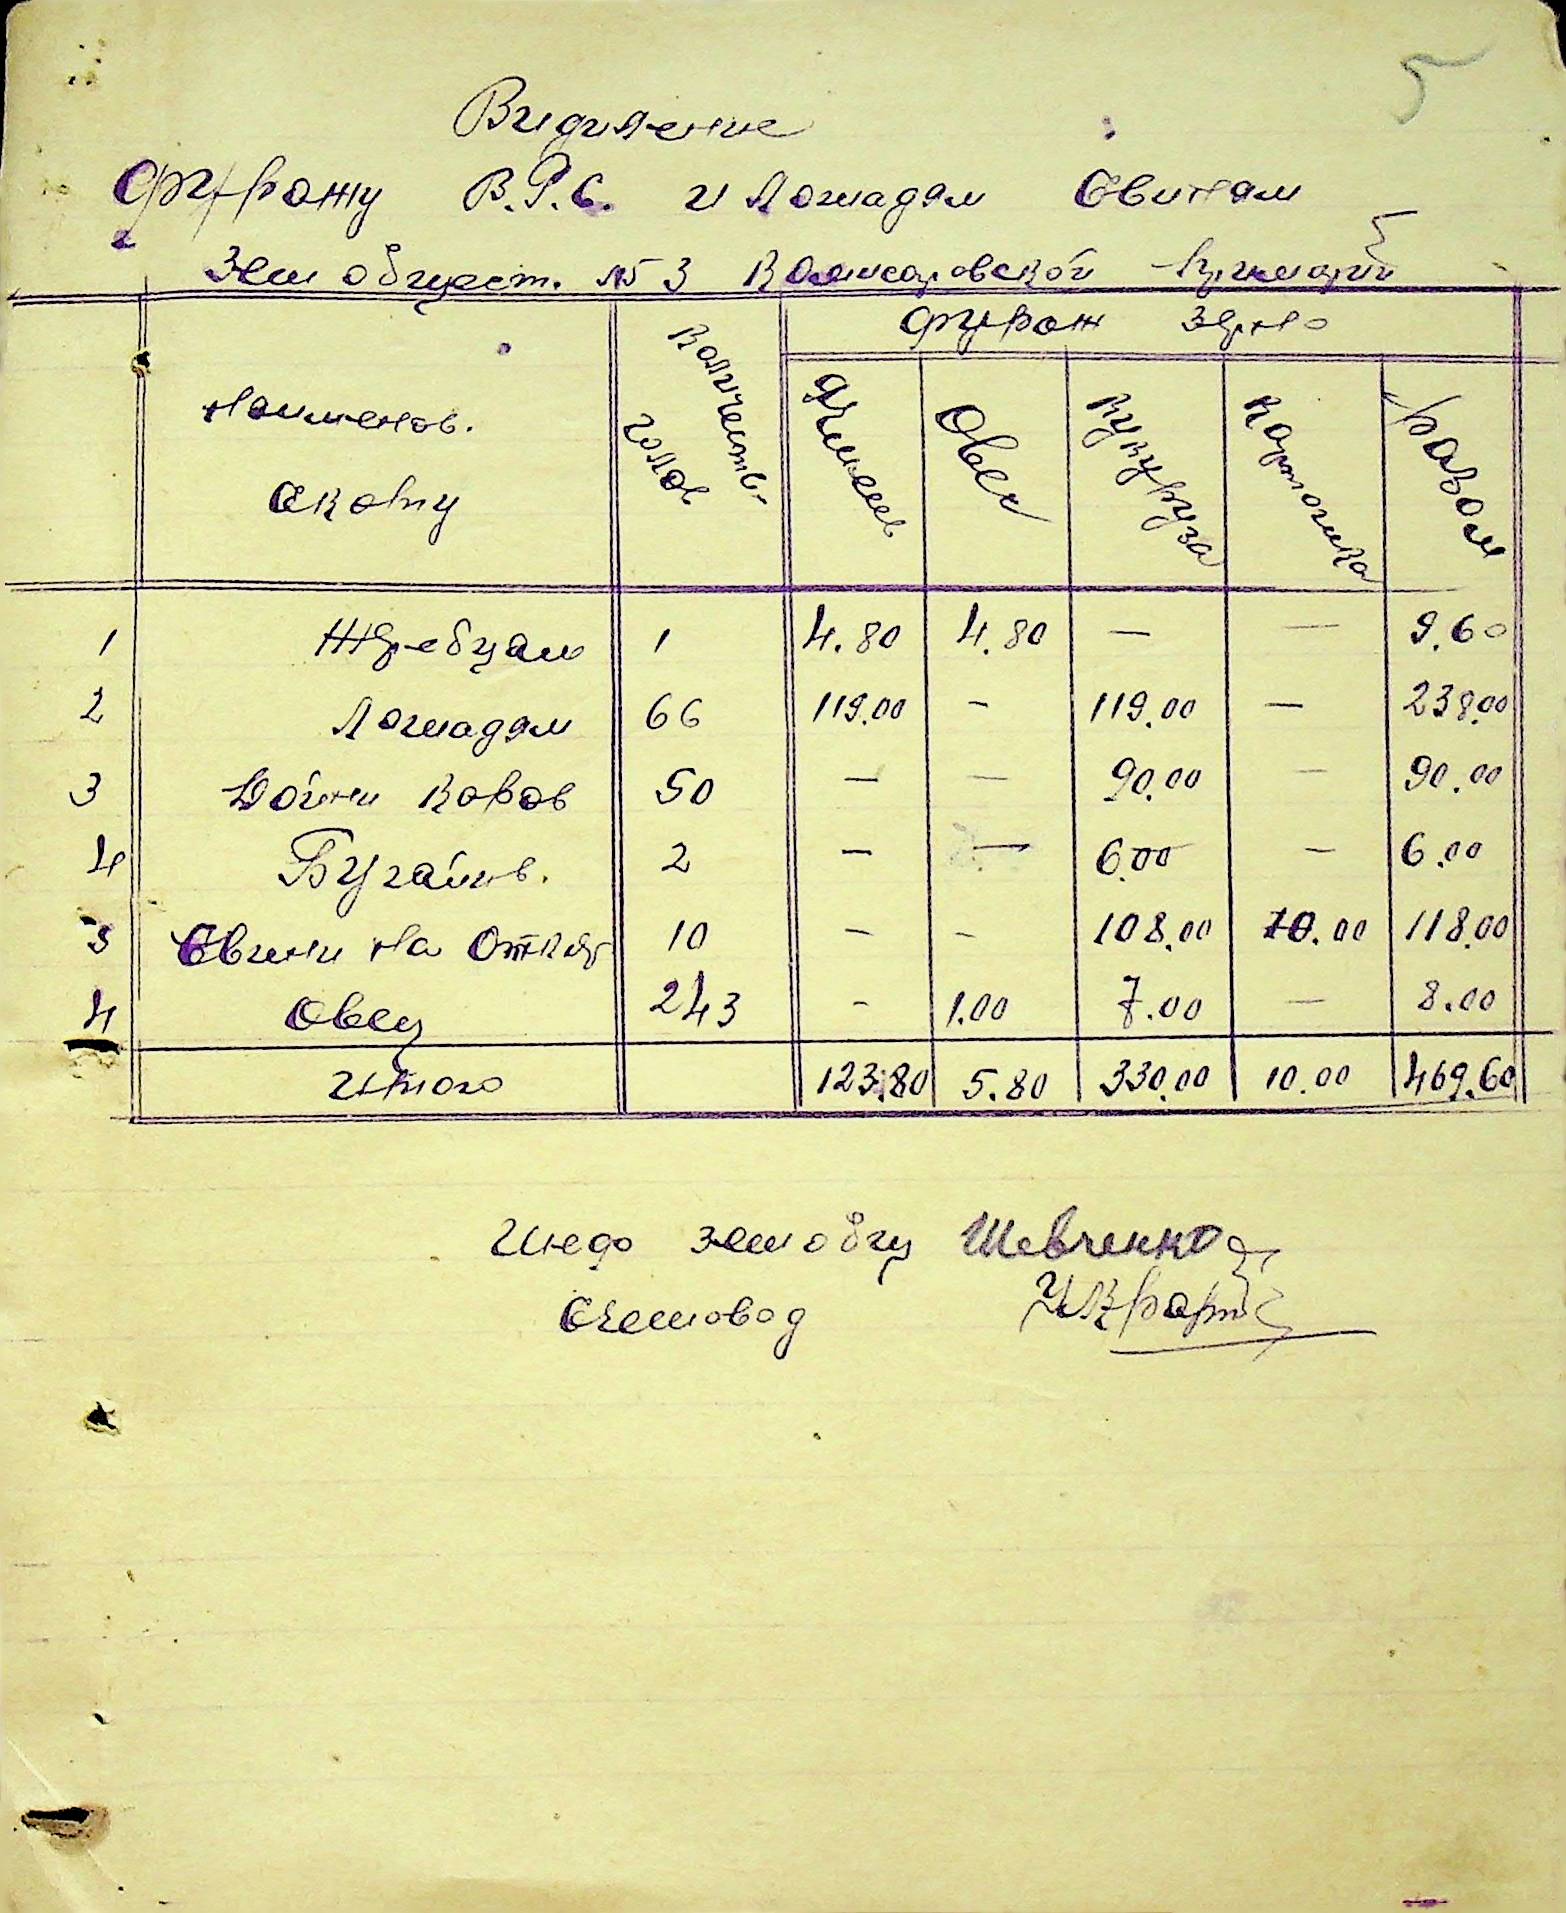 5
Видиление
Фуражу В.Р.С. и Лошадям Свиням
Зем общест. № 3 Комисаровской
Наименов. скоту
Количеств- голов
Фураж зерно
Ячмень
Овес
Кукуруза
Картошка
Разом
1 Жеребцам 1 4.80 4.80 — — 9.60
2 Лошадям 66 119.00 - 119.00 — 238.00
3 Дойни Коров 50 — — 90.00 — 90.00
4 Бугайив. 2 — — 6.00 — 6.00
5 Свини на Откор 10 — - 108.00 10.00 118.00
4 Овец 243 - 1.00 7.00 — 8.00
Итого 123.80 5.80 330.00 10.00 469.60
земобщ Шевченко
Счетовод